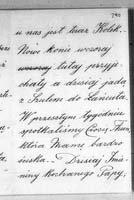 u nas jest teraz Hotek.
Nowe konie wczoraj
tutaj przyje
chały a dzisiaj jadą
z Trutem do Łańcuta.
W przeszłym tygodniu
spotkaliśmy Ciocię
która Mamy bardzo
Dzisiaj Imie
niny kochanego Papy,